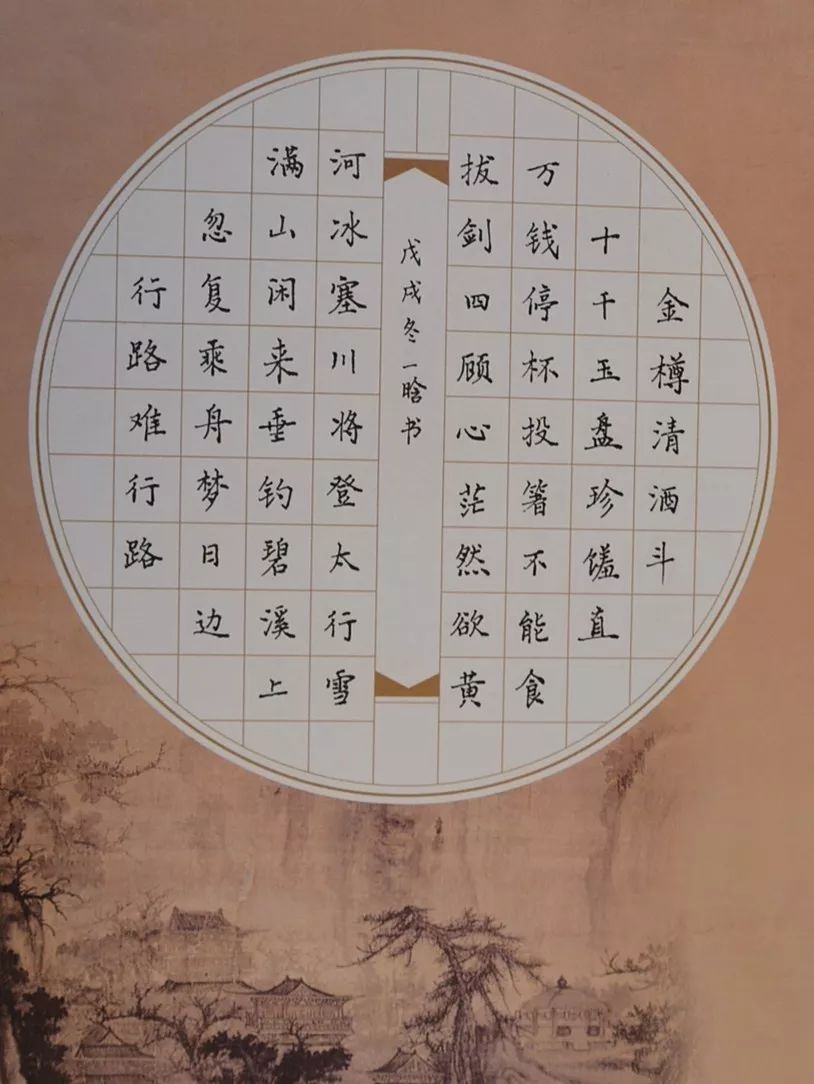 金樽清酒斗
十千玉盘珍馐直
万钱停杯投箸不能食
拔剑四顾心茫然欲黄
戊戌冬一晗书
河冰塞川将登太行雪
满山闲来垂钓碧溪上
忽复乘舟梦日边
行路难行路